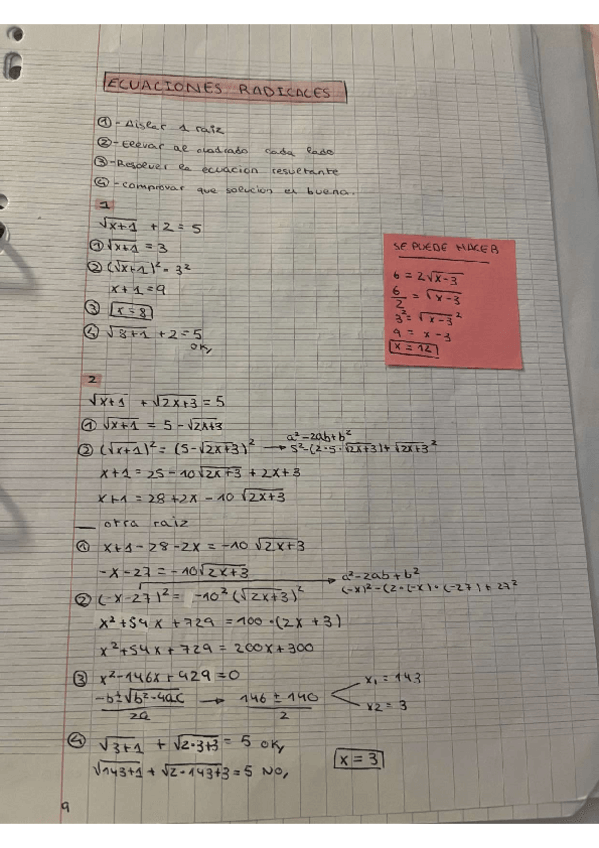 ECUACIONES RADICALES
① - Aislar 1 raiz
② - Elevar al cuadrado cada lado
③ - Resolver la ecuacion resultante
④ - comprovar que solucion es buena.
1
√x+1 + 2 = 5
① √x+1 = 3
② (√x+1)² = 3²
x+1 = 9
③ x = 8
④ √8+1 + 2 = 5
OK,
SE PUEDE HACER
6 = 2√x-3
6/2 = √x-3
3² = √x-3²
9 = x-3
x = 12
2
√x+1 + √2x+3 = 5
① √x+1 = 5 - √2x+3
② (√x+1)² = (5-√2x+3)² → a²-2ab+b²
5²-(2·5·√2x+3)+√2x+3²
x+1 = 25 - 10√2x+3 + 2x+3
x+1 = 28+2x - 10√2x+3
__ otra raiz
① x+1-28-2x = -10√2x+3
-x-27 = -10√2x+3
② (-x-27)² = -10²(√2x+3)² → a²-2ab+b²
(-x)²-(2·(-x)·(-27)+27²
x²+54x+729 = 100·(2x+3)
x²+54x+729 = 200x+300
③ x²-146x+429=0
-b±√b²-4ac/2a → 146±140/2
x₁ = 143
x2 = 3
④ √3+1 + √2·3+3 = 5 OK,
√143+1 + √2·143+3 = 5 NO,
x = 3
9